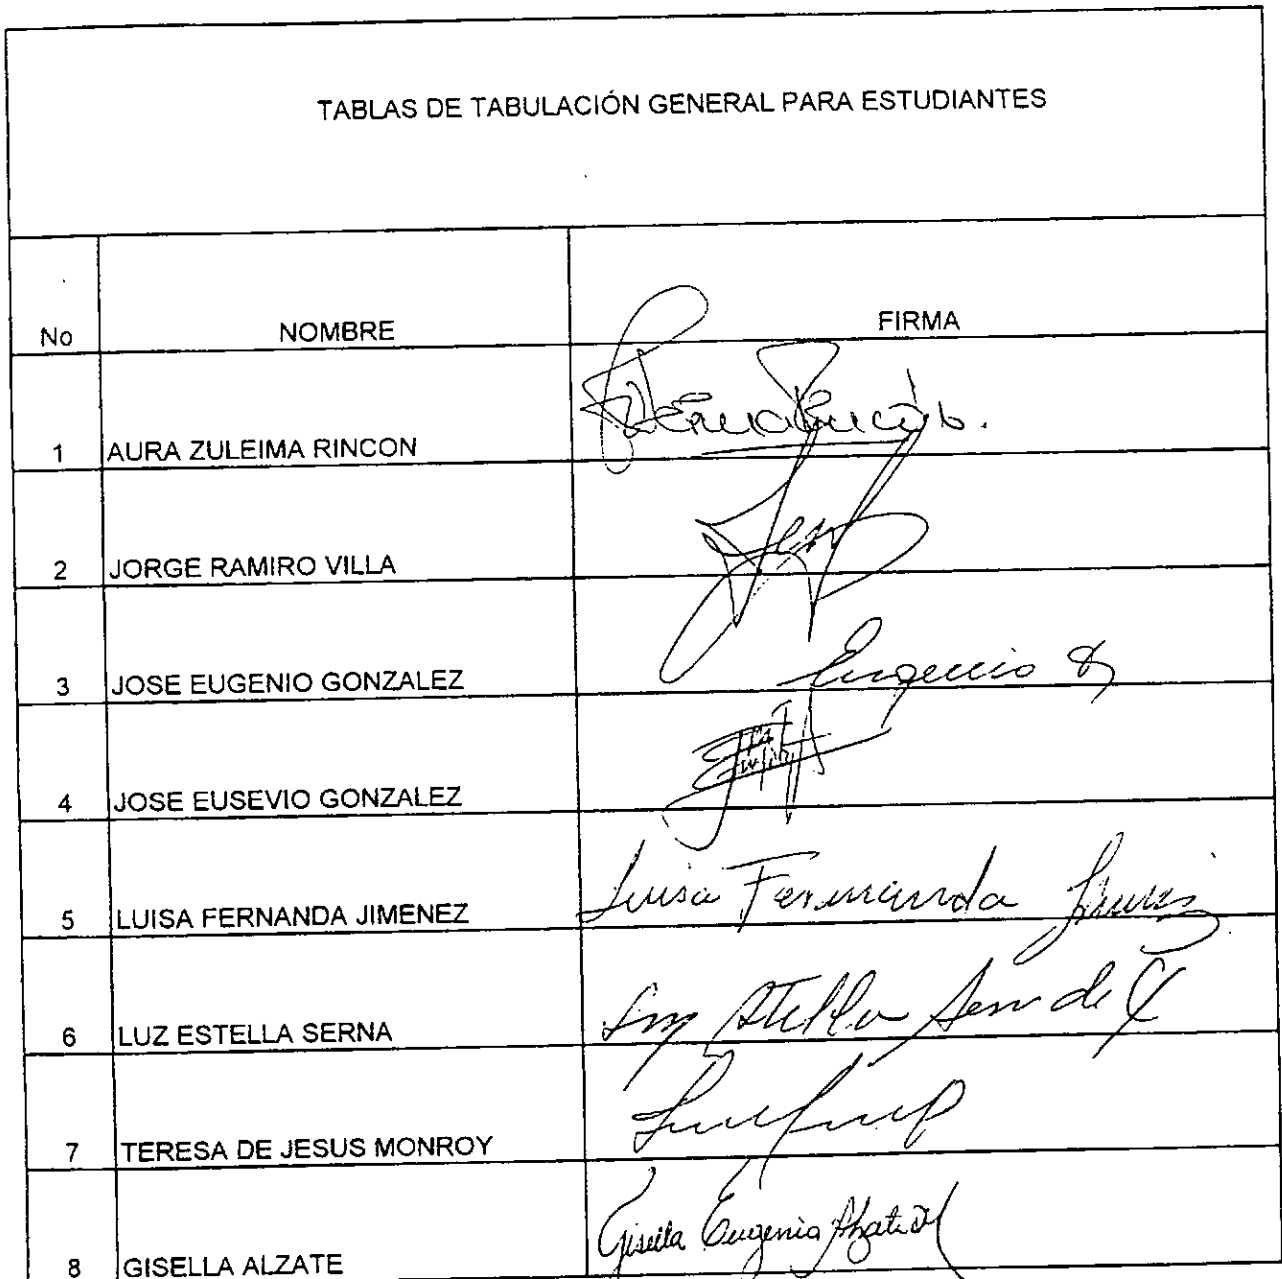 TABLAS DE TABULACIÓN GENERAL PARA ESTUDIANTES
No NOMBRE FIRMA
1 AURA ZULEIMA RINCON
2 JORGE RAMIRO VILLA
3 JOSE EUGENIO GONZALEZ Eugenio
4 JOSE EUSEVIO GONZALEZ
5 LUISA FERNANDA JIMENEZ Luisa Fernanda
6 LUZ ESTELLA SERNA
7 TERESA DE JESUS MONROY
8 GISELLA ALZATE Gisella Eugenia